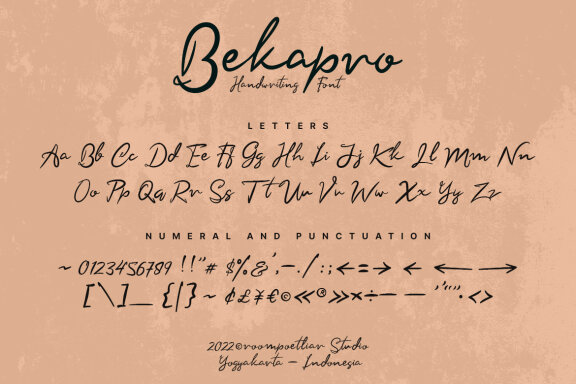 Bekapro
Handwriting Font
LETTERS
Aa Bb Cc Dd Ee Ff Gg Hh Ii Jj Kk Ll Mm Nn
Oo Pp Qq Rr Ss Tt Uu Vv Ww Xx Yy Zz
NUMERAL AND PUNCTUATION
~ 0123456789 !!"# $%&',-./:;←=→ ← ←—→
[\]_ {|} ~ ¢£¥€©«®»×÷– — ''""•<>
2022©roompoetliar Studio
Yogyakarta – Indonesia